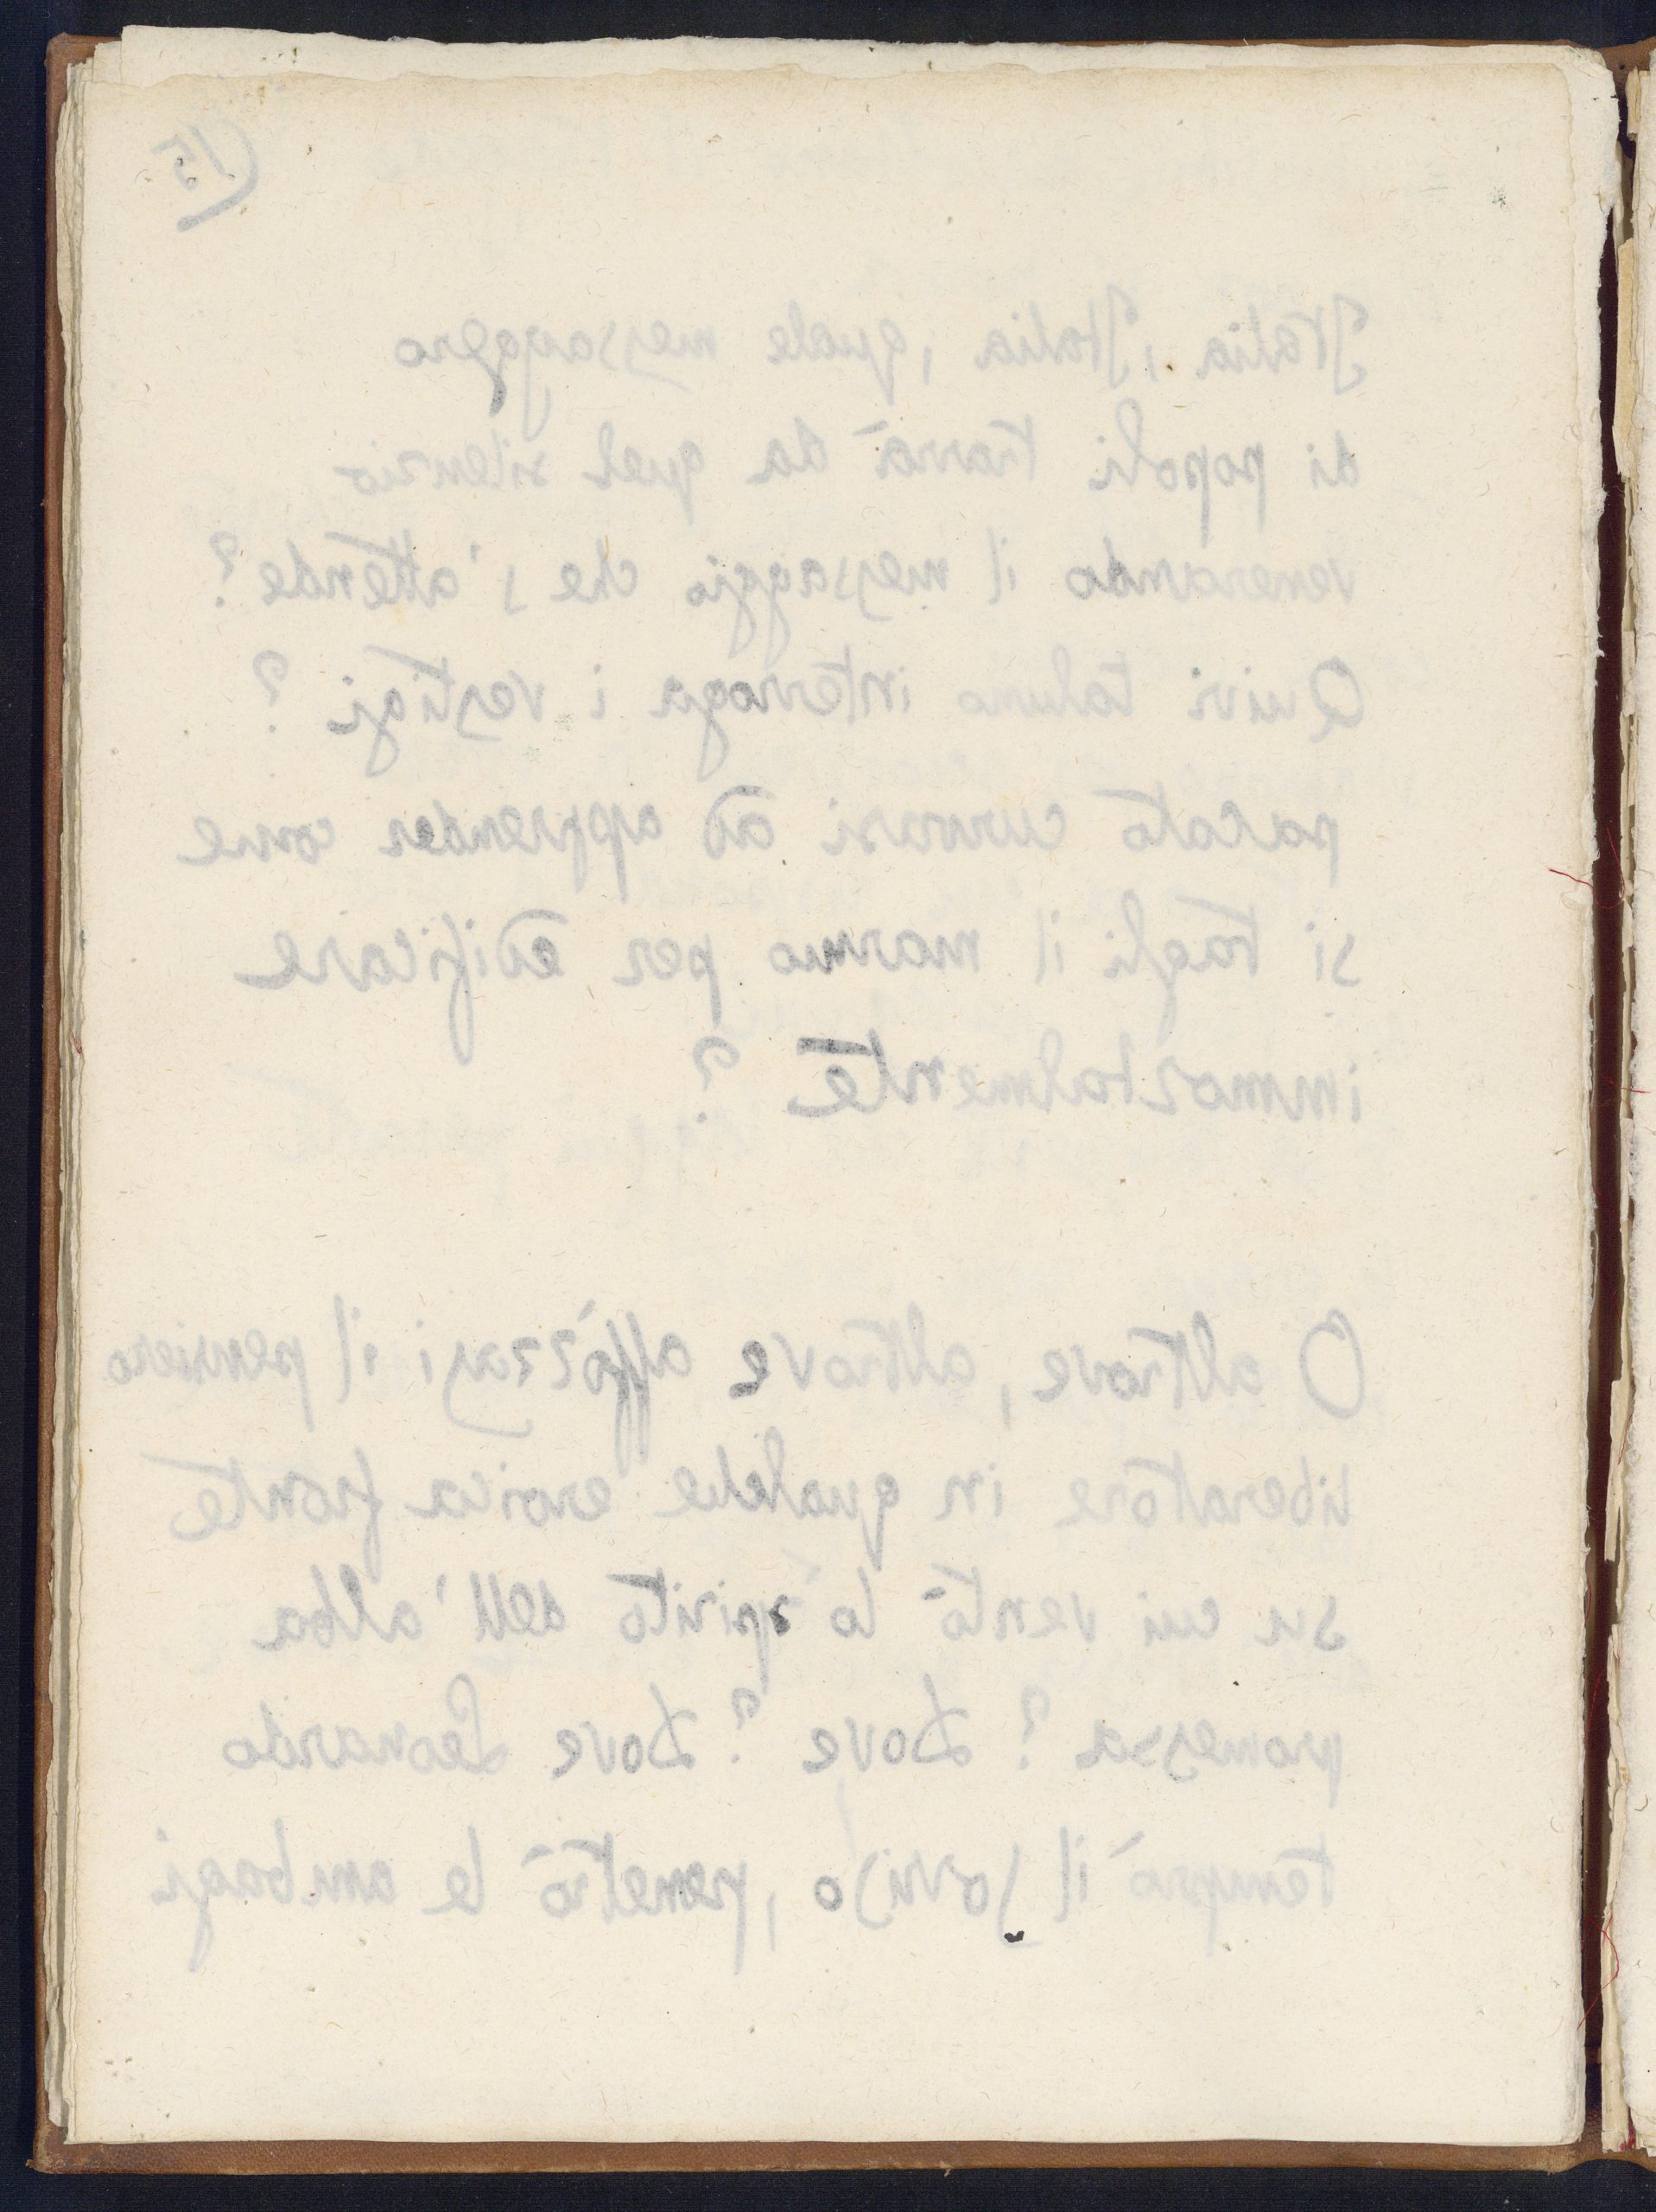 15
Italia, Italia, quale messaggero
di popoli trarrà da quel silenzio
venerando il messaggio che s'attende?
Quivi taluno interroga i vestigi?
pacato curvasi ad apprender come
si tagli il marmo per edificare
immortalmente?
O altrove, altrove afforzasi il pensiero
liberatore in qualche eroica fronte
su cui ventò lo spirito dell'alba
promessa? Dove? Dove Leonardo
temprò il sorriso, penetrò le ambagi